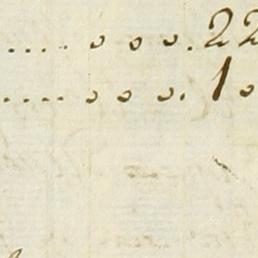 ..... o o o. 22
..... o o o. 1 o